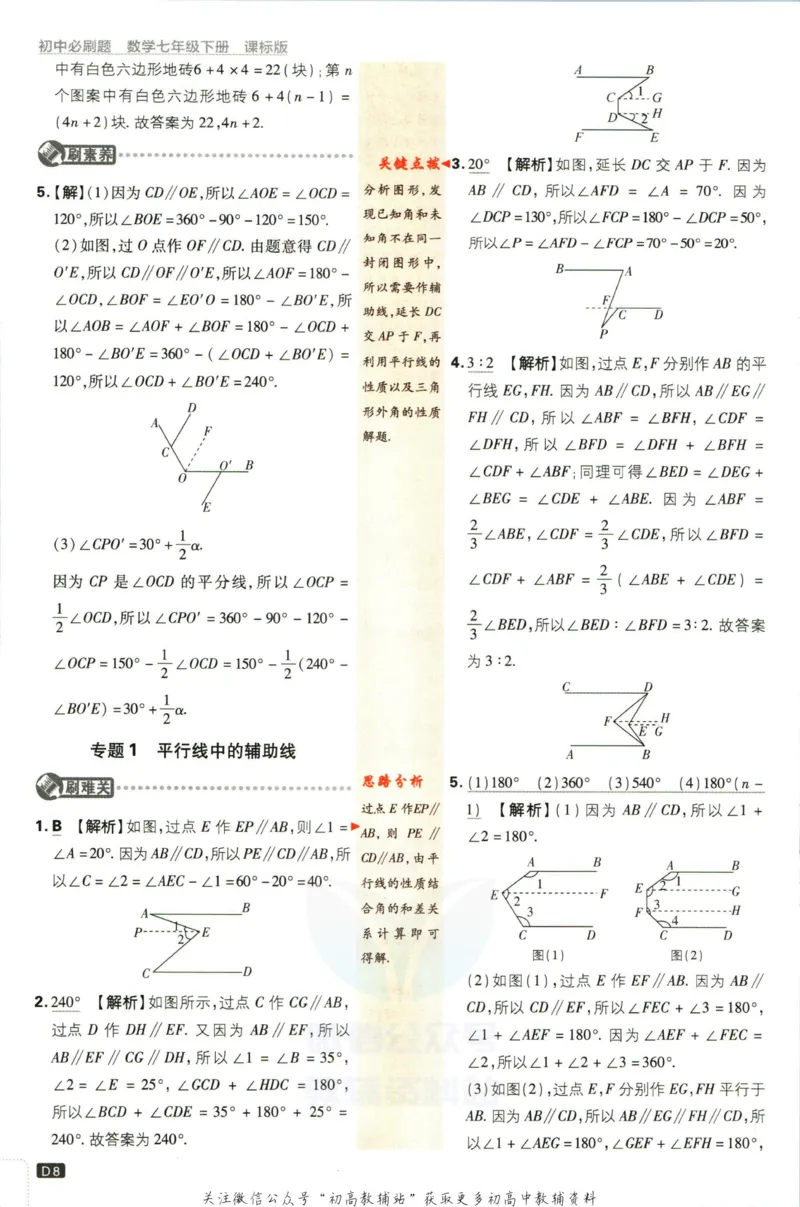 初中必刷题 数学七年级下册 课标版
中有白色六边形地砖6+4×4=22(块);第 n
个图案中有白色六边形地砖 6+4(n-1)=
(4n+2)块.故答案为 22,4n+2.
刷素养
5.【解】(1)因为 CD∥OE,所以∠AOE=∠OCD=
120°,所以∠BOE=360°-90°-120°=150°.
(2)如图,过 O 点作 OF∥CD.由题意得 CD∥
O′E,所以 CD∥OF∥O′E,所以∠AOF=180°-
∠OCD,∠BOF=∠EO′O=180°-∠BO′E,所
以∠AOB=∠AOF+∠BOF=180°-∠OCD+
180°-∠BO′E=360°-(∠OCD+∠BO′E)=
120°,所以∠OCD+∠BO′E=240°.
D
A
F
C
O′ B
O
E
(3)∠CPO′=30°+1/2α.
因为 CP 是∠OCD 的平分线,所以∠OCP=
1/2∠OCD,所以∠CPO′=360°-90°-120°-
∠OCP=150°-1/2∠OCD=150°-1/2(240°-
∠BO′E)=30°+1/2α.
专题1 平行线中的辅助线
刷难关
1.B 【解析】如图,过点 E 作 EP∥AB,则∠1=
∠A=20°.因为AB∥CD,所以PE∥CD∥AB,所
以∠C=∠2=∠AEC-∠1=60°-20°=40°.
A B
P 1 2 E
C D
2.240° 【解析】如图所示,过点 C 作 CG∥AB,
过点 D 作 DH∥EF.又因为 AB∥EF,所以
AB∥EF∥CG∥DH,所以∠1=∠B=35°,
∠2=∠E=25°,∠GCD+∠HDC=180°,
所以∠BCD+∠CDE=35°+180°+25°=
240°.故答案为 240°.
D8
关键点拨
分析图形,发
现已知角和未
知角不在同一
封闭图形中,
所以需要作辅
助线,延长 DC
交 AP 于 F,再
利用平行线的
性质以及三角
形外角的性质
解题.
思路分析
过点 E 作EP∥
AB,则 PE∥
CD∥AB,由平
行线的性质结
合角的和差关
系计算即可
得解.
A B
C 1 G
D 2 H
F E
3.20° 【解析】如图,延长 DC 交 AP 于 F.因为
AB∥CD,所以∠AFD=∠A=70°.因为
∠DCP=130°,所以∠FCP=180°-∠DCP=50°,
所以∠P=∠AFD-∠FCP=70°-50°=20°.
B A
F
C D
P
4.3∶2 【解析】如图,过点 E,F 分别作 AB 的平
行线 EG,FH.因为 AB∥CD,所以 AB∥EG∥
FH∥CD,所以∠ABF=∠BFH,∠CDF=
∠DFH,所以∠BFD=∠DFH+∠BFH=
∠CDF+∠ABF;同理可得∠BED=∠DEG+
∠BEG=∠CDE+∠ABE.因为∠ABF=
2/3∠ABE,∠CDF=2/3∠CDE,所以∠BFD=
∠CDF+∠ABF=2/3(∠ABE+∠CDE)=
2/3∠BED,所以∠BED∶∠BFD=3∶2.故答案
为 3∶2.
C D
F H
E G
A B
5.(1)180° (2)360° (3)540° (4)180°(n-
1) 【解析】(1)因为 AB∥CD,所以∠1+
∠2=180°.
A B
E 1 F
2
3
C D
图(1)
A B
E 2 1 G
F 3 H
4
C D
图(2)
(2)如图(1),过点 E 作 EF∥AB.因为 AB∥
CD,所以 CD∥EF,所以∠FEC+∠3=180°,
∠1+∠AEF=180°.因为∠AEF+∠FEC=
∠2,所以∠1+∠2+∠3=360°.
(3)如图(2),过点 E,F 分别作 EG,FH 平行于
AB.因为 AB∥CD,所以 AB∥EG∥FH∥CD,所
以∠1+∠AEG=180°,∠GEF+∠EFH=180°,
关注微信公众号“初高教辅站”获取更多初高中教辅资料